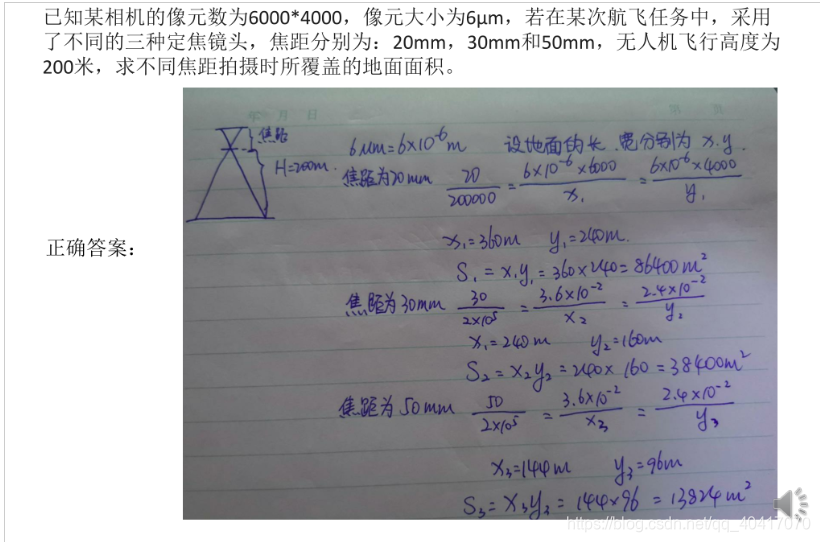 已知某相机的像元数为6000*4000，像元大小为6μm，若在某次航飞任务中，采用
了不同的三种定焦镜头，焦距分别为：20mm，30mm和50mm，无人机飞行高度为
200米，求不同焦距拍摄时所覆盖的地面面积。
年 月 日
第 页
焦距
H=200m.
6μm=6×10⁻⁶m 设地面的长.宽分别为 x.y.
焦距为20mm 20/200000 = 6×10⁻⁶×6000/x₁ = 6×10⁻⁶×4000/y₁
x₁=360m y₁=240m.
正确答案：
S₁=x₁y₁=360×240=86400m²
焦距为30mm 30/2×10⁵ = 3.6×10⁻²/x₂ = 2.4×10⁻²/y₂
x₁=240m y₂=160m
S₂=x₂y₂=240×160=38400m²
焦距为50mm 50/2×10⁵ = 3.6×10⁻²/x₃ = 2.4×10⁻²/y₃
x₃=144m y₃=96m
S₃=x₃y₃=144×96=13824m²
https://blog.csdn.net/qq_40417070